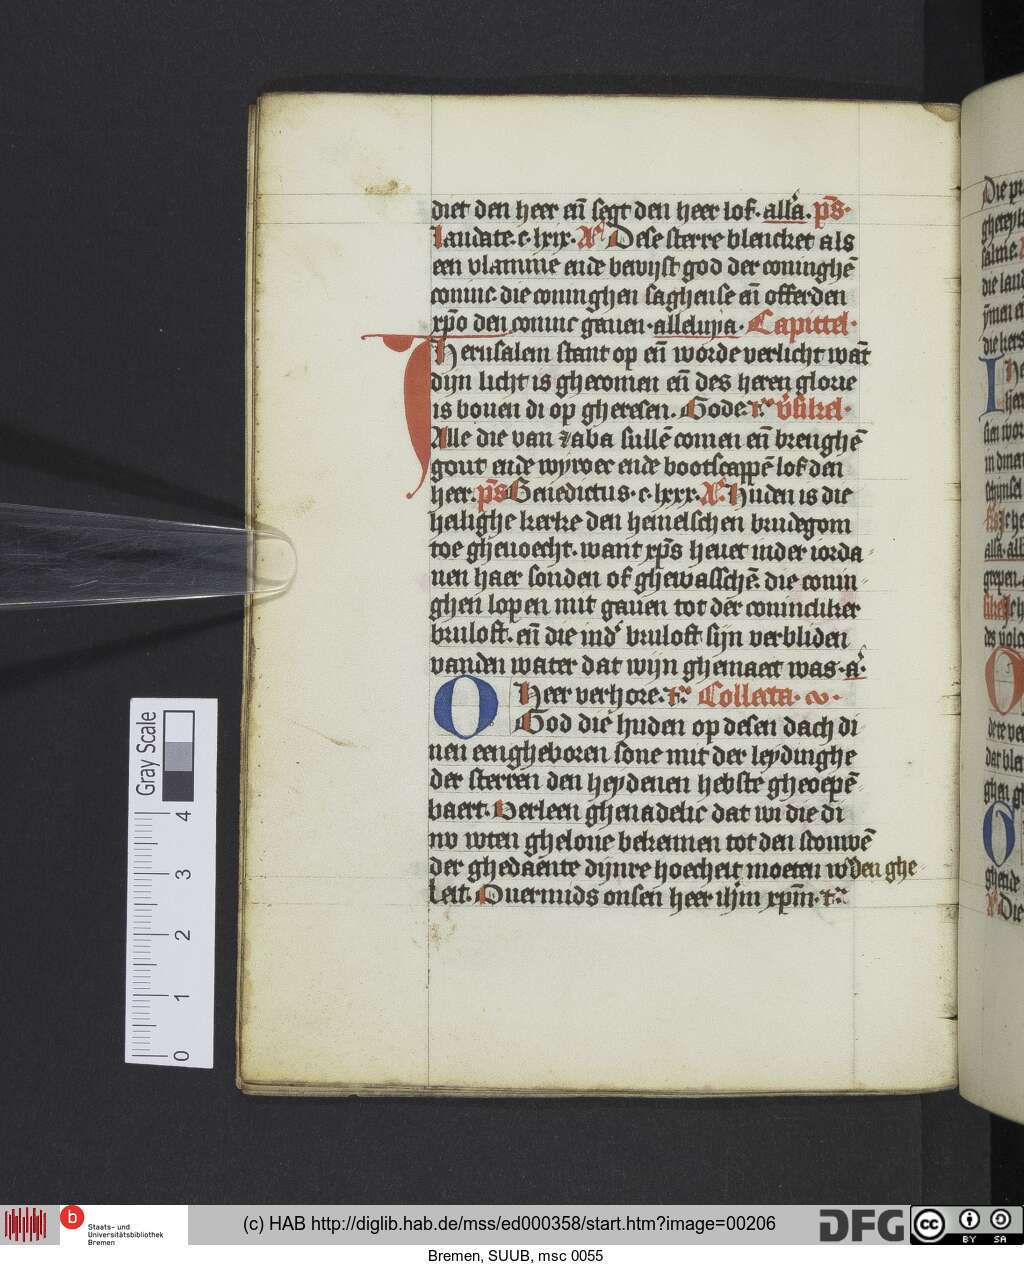 diet den heer eñ segt den heer lof. all'a. ps̄.
laudate. c. lxix. Añ. Dese sterre blencket als
een vlamme ende bewijst god der coninghē
coninc. die coninghen saghense eñ offerden
xpō den coninc gauen. alleluija. Capittel.
Jherusalem stant op eñ worde verlicht wāt
dijn licht is ghecomen eñ des heren glorie
is bouen di op gheresen. Gode. v̄sikel.
Alle die van zaba sullē comen eñ brenghē
gout ende wyroec ende bootscappē lof den
heer. ps̄ Benedictus. c. lxxx. Añ. Huden is die
heilighe kerke den hemelschen brudegom
toe gheuoecht. want xps̄ heuet inder iorda
nen haer sonden of ghewasschē. die conin
ghen lopen mit gauen tot der conincliker
bruloft. eñ die ind' bruloft sijn verbliden
vanden water dat wijn ghemaect was. a'.
O Heer verhore. Collecta.
God die huden op desen dach di
nen eengheboren sone mit der leydinghe
der sterren den heydenen hebste gheoepē
baert. Verleen ghenadelic dat wi die di
nv wten gheloue bekennen tot den scouwē
der ghedaente dijnre hoecheit moeten w'den ghe
leit. Ouermids onsen heer ihm xpm̄.
Gray Scale
4
3
2
1
0
Die
die lant
die hers
Staats- und
Universitätsbibliothek
Bremen
(c) HAB http://diglib.hab.de/mss/ed000358/start.htm?image=00206
DFG
cc
BY SA
Bremen, SUUB, msc 0055